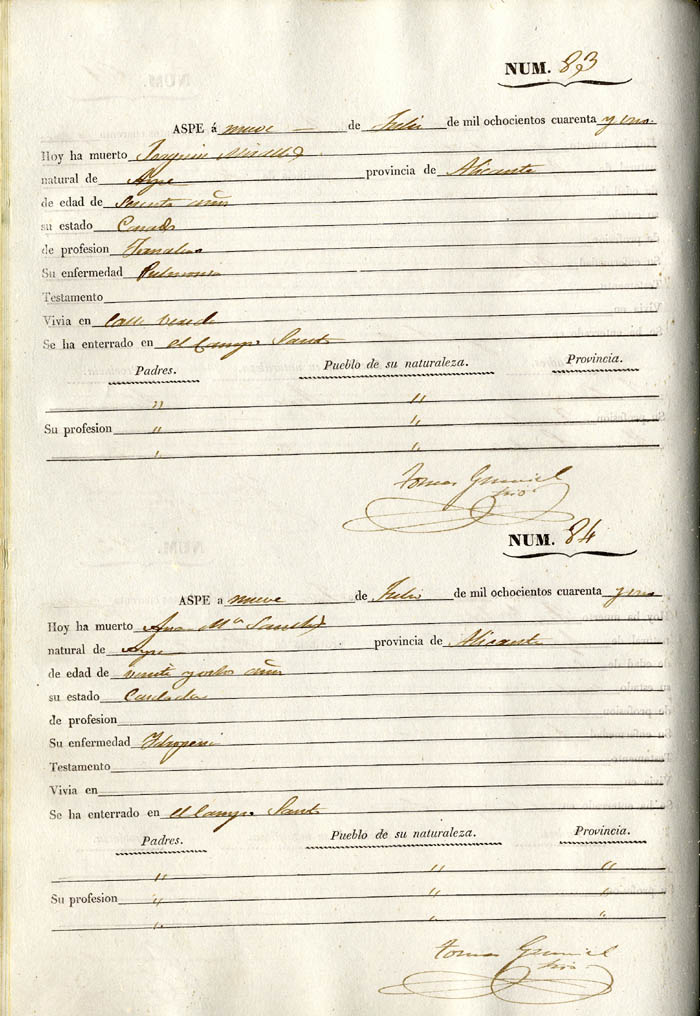 NUM. 83
ASPE á nueve de Julio de mil ochocientos cuarenta y uno.
Hoy ha muerto Joaquin
natural de Aspe provincia de Alicante
de edad de años
su estado Casado
de profesion Jornalero
Su enfermedad Pulmonia
Testamento
Vivia en Calle
Se ha enterrado en el Campo Santo
Padres. Pueblo de su naturaleza. Provincia.
" "
Su profesion " "
" "
Tomas
Srio
NUM. 84
ASPE a nueve de Julio de mil ochocientos cuarenta y uno
Hoy ha muerto Ana Mª Sanchez
natural de Aspe provincia de Alicante
de edad de veinte y ocho años
su estado Casada
de profesion
Su enfermedad
Testamento
Vivia en
Se ha enterrado en el Campo Santo
Padres. Pueblo de su naturaleza. Provincia.
" " "
Su profesion " " "
" " "
Tomas
Srio